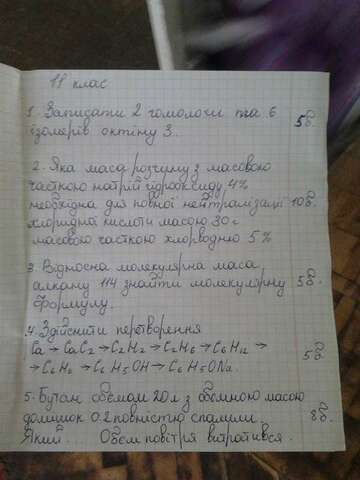 11 клас
1. Записати 2 гомологи та 6 5б.
ізомерів октіну 3.
2. Яка маса розчину з масовою
часткою натрій гідроксиду 4%
необхідна для повної нейтралізації 10б.
хлоридної кислоти масою 30г
масовою часткою хлорводню 5%
3. Відносна молекулярна маса
алкану 114 знайти молекулярну 5б.
формулу.
4. Здійснити перетворення
Ca → CaC2 → C2H2 → C2H6 → C6H12 → 5б.
→ C6H6 → C6H5OH → C6H5ONa.
5. Бутан обємом 20л з обємною масою
домішок 0.2 повністю спалили. 8б.
Який Обєм повітря витратився.